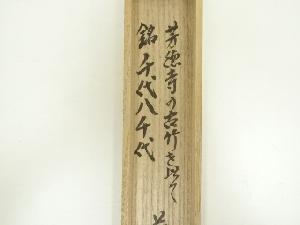 芳徳寺の古竹を以て
銘 千代八千代